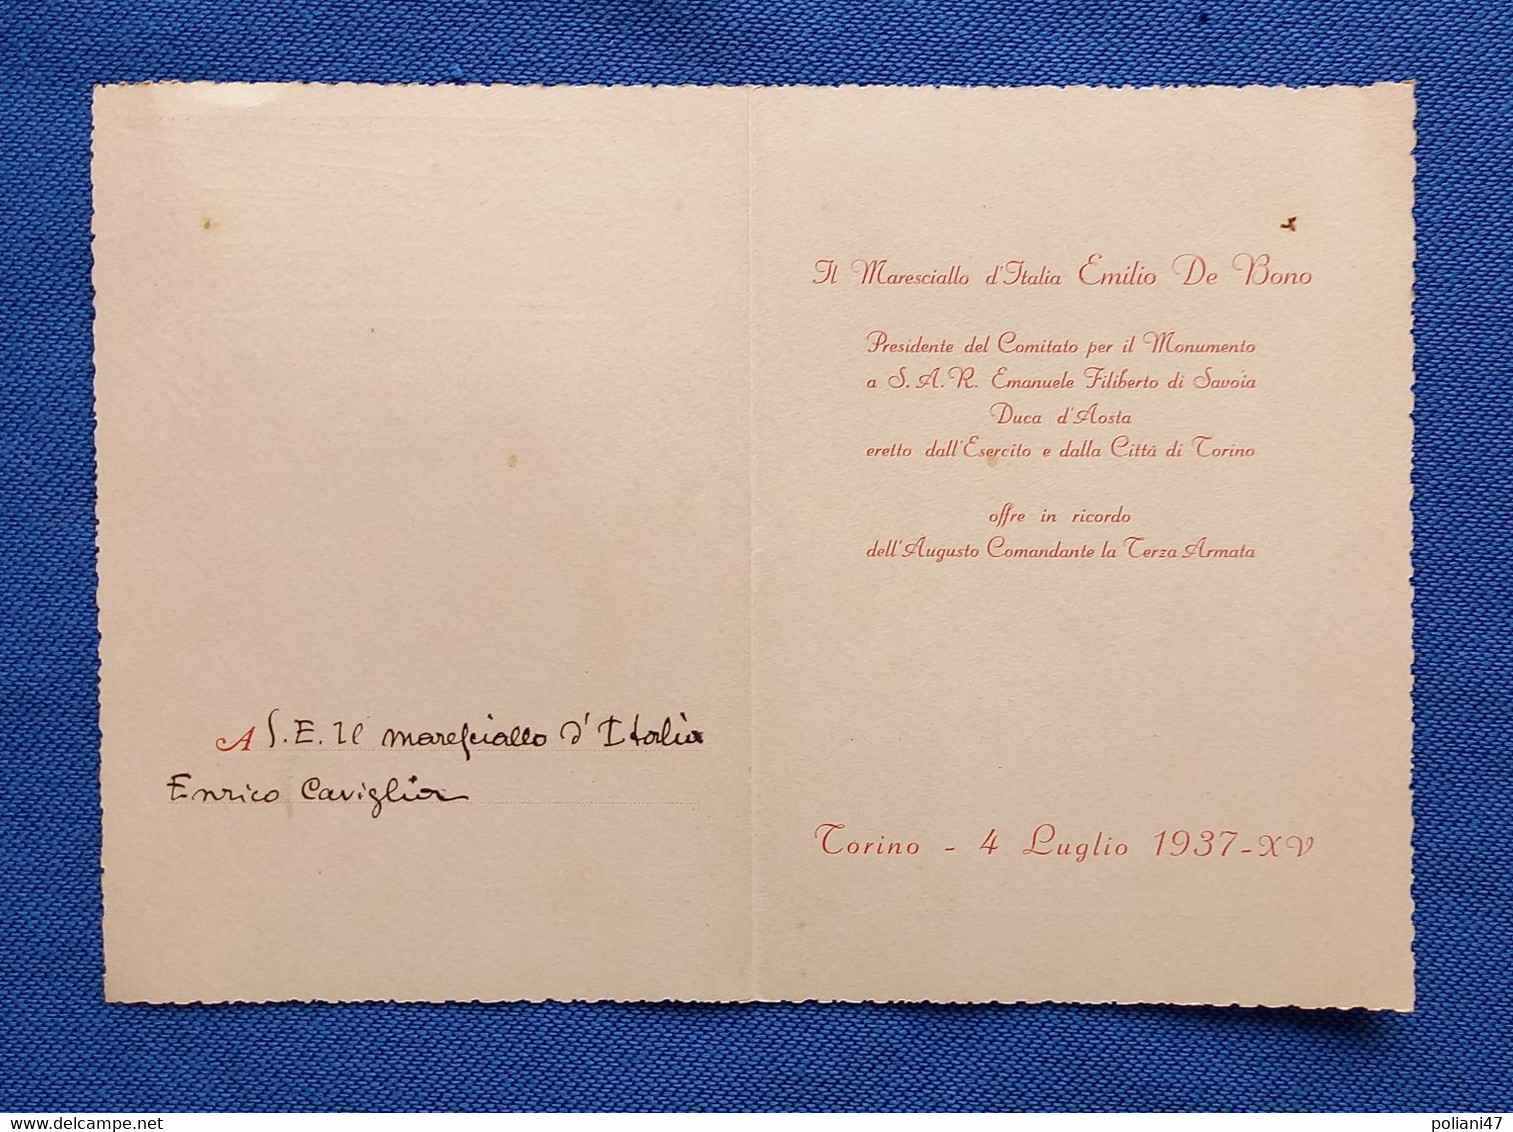 A S. E. Il Maresciallo d'Italia
Enrico Caviglia
Il Maresciallo d'Italia Emilio De Bono
Presidente del Comitato per il Monumento
a S. A. R. Emanuele Filiberto di Savoia
Duca d'Aosta
eretto dall'Esercito e dalla Città di Torino
offre in ricordo
dell'Augusto Comandante la Terza Armata
Torino - 4 Luglio 1937-XV
poliani47